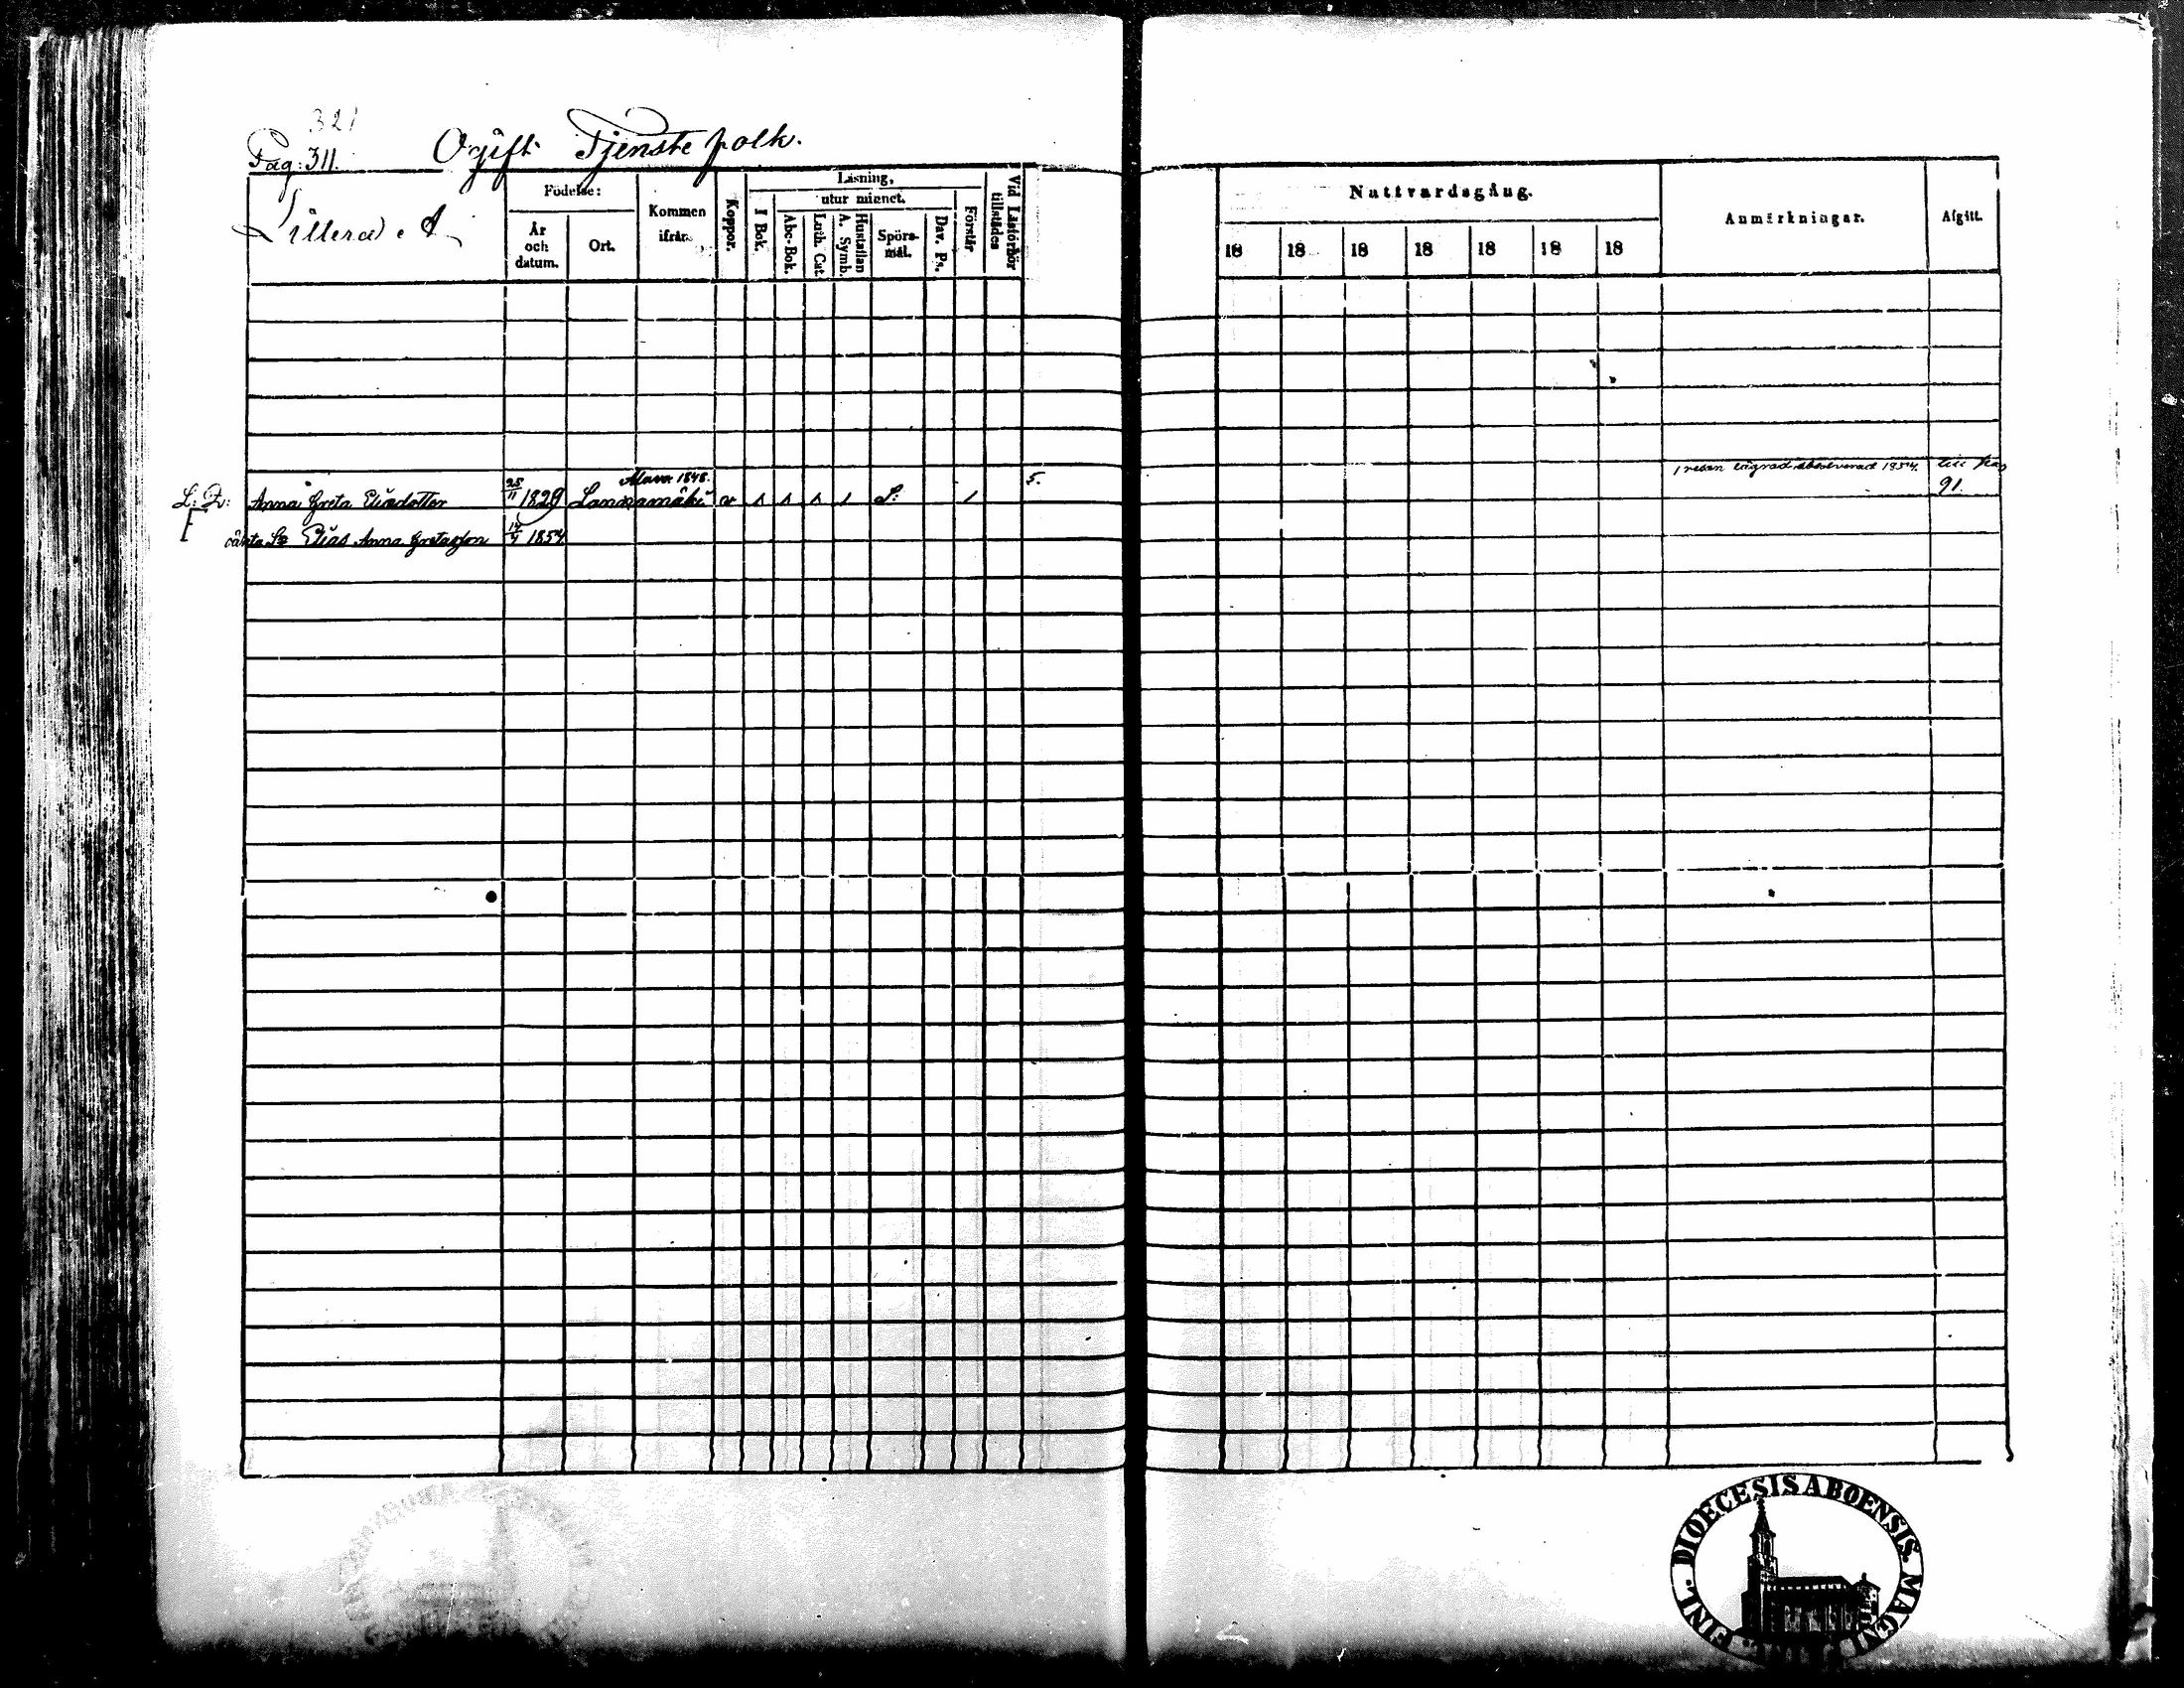 321
Pag: 311. Ogift Tjenstefolk.
Littera A
Födelse:
År och datum.
Ort.
Kommen ifrån.
Koppor.
Läsning,
utur minnet.
I Bok.
Abc-Bok.
Luth. Cat.
Hustaflan A. Symb.
Spörsmål.
Dav. Ps.
Förstår
Vid Läsförhör tillstädes
Nattvardsgång.
18 18 18 18 18 18 18
Anmärkningar.
Afgått.
Alavo 1848.
5.
1 resan lägrad absolverad 1854. till pag
91.
L. D: Anna Greta Eliædotter 25/11 1829 Lannamäki
oäkta Elias Anna Gretasson 1854
FINL. DIOECESIS ABOENSIS. MAGNI